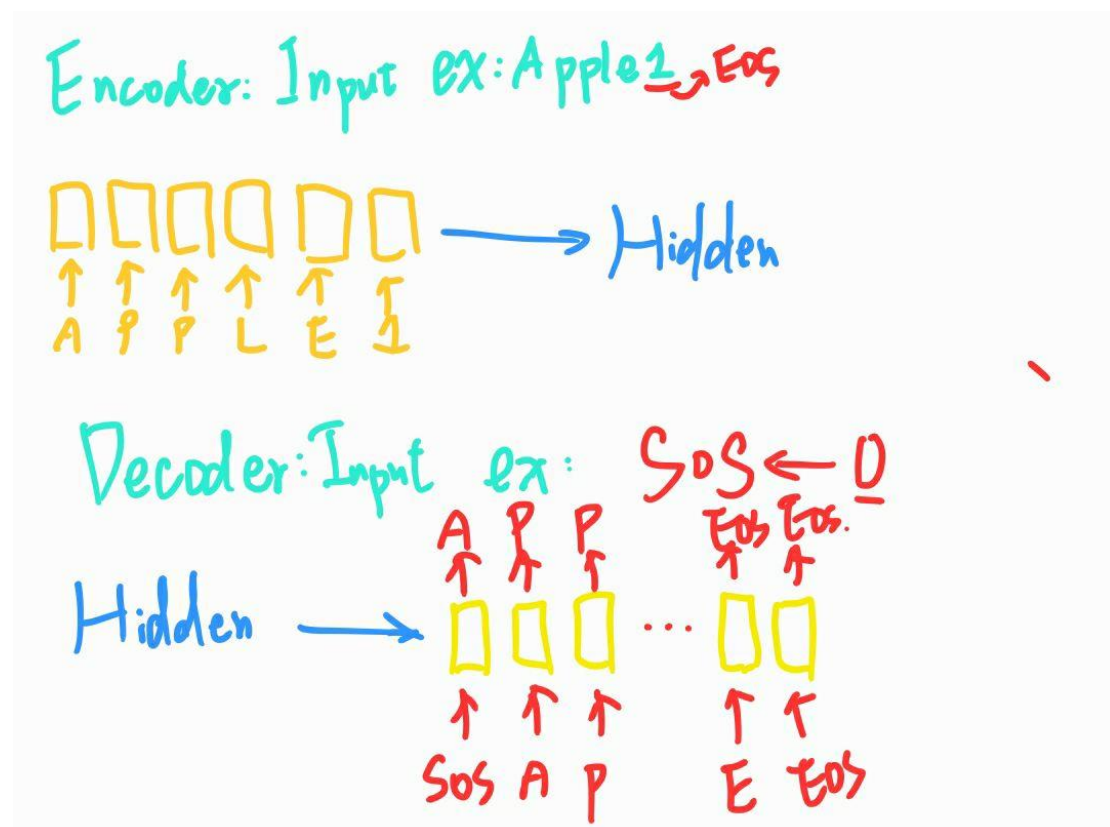 Encoder: Input ex: Apple1 EOS
Hidden
A P P L E 1
Decoder: Input ex: SOS ← 0
A P P EOS EOS.
Hidden ...
SOS A P E EOS